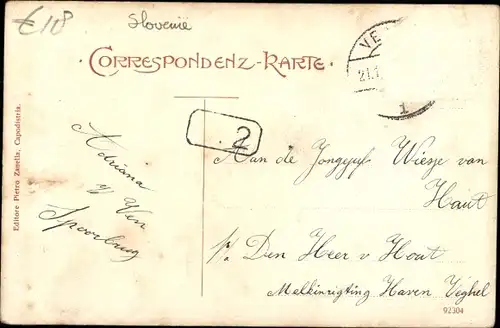 €18
Slovenië
CORRESPONDENZ-KARTE.
VE
21.1
1
2
Adriana
v Ven
Spoorbrug
Aan de Jongejuf Wiesje van
Hout
p/a Den Heer v Hout
Melkinrigting Haven Veghel
Editore Pietro Zasella, Capodistria.
92304